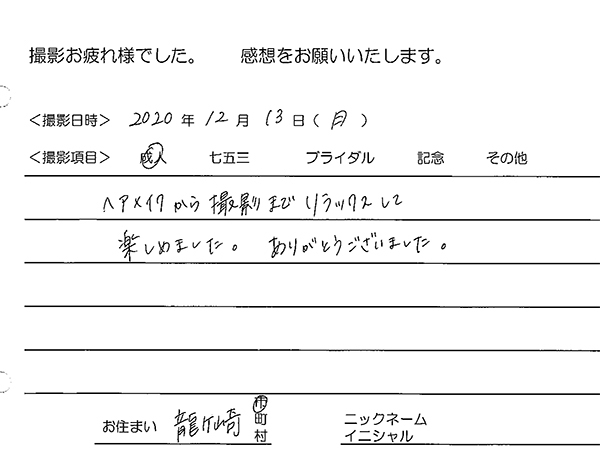 撮影お疲れ様でした。 感想をお願いいたします。
＜撮影日時＞ 2020 年 12 月 13 日（ 月 ）
＜撮影項目＞ 成人 七五三 ブライダル 記念 その他
ヘアメイクから撮影までリラックスして
楽しめました。 ありがとうございました。
お住まい 龍ケ崎 市町村 ニックネーム イニシャル